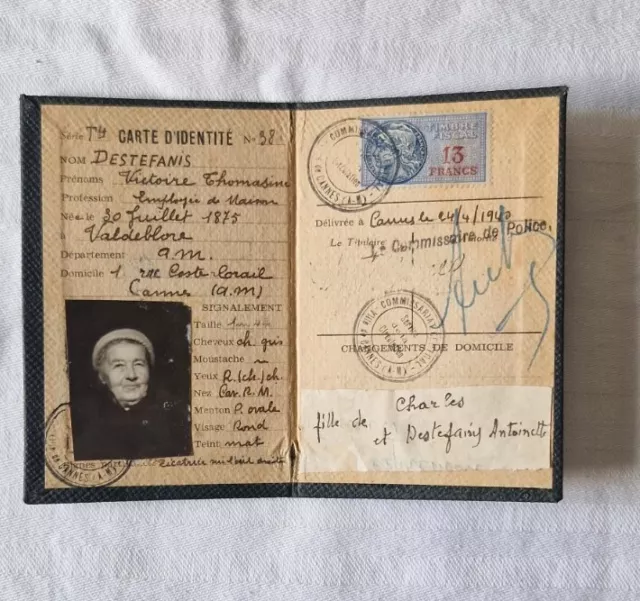 Série Th CARTE D'IDENTITÉ N° 38
NOM DESTEFANIS
Prénoms Victoire Thomasine
Profession Employée de Maison
Née le 30 Juillet 1875
à Valdeblore
Département a.m.
Domicile 1, rue Coste-Corail
Cannes (a.m)
SIGNALEMENT
Taille
Cheveux ch. gris
Moustache
Yeux R. (ch.) ch.
Nez Cav. R. M.
Menton P. ovale
Visage Rond
Teint mat
cicatrice
TIMBRE FISCAL
13
FRANCS
Délivrée à Cannes le 24/4/1940
Le Titulaire
Commissaire de Police.
CHANGEMENTS DE DOMICILE
fille de Charles
et Destefanis Antoinette